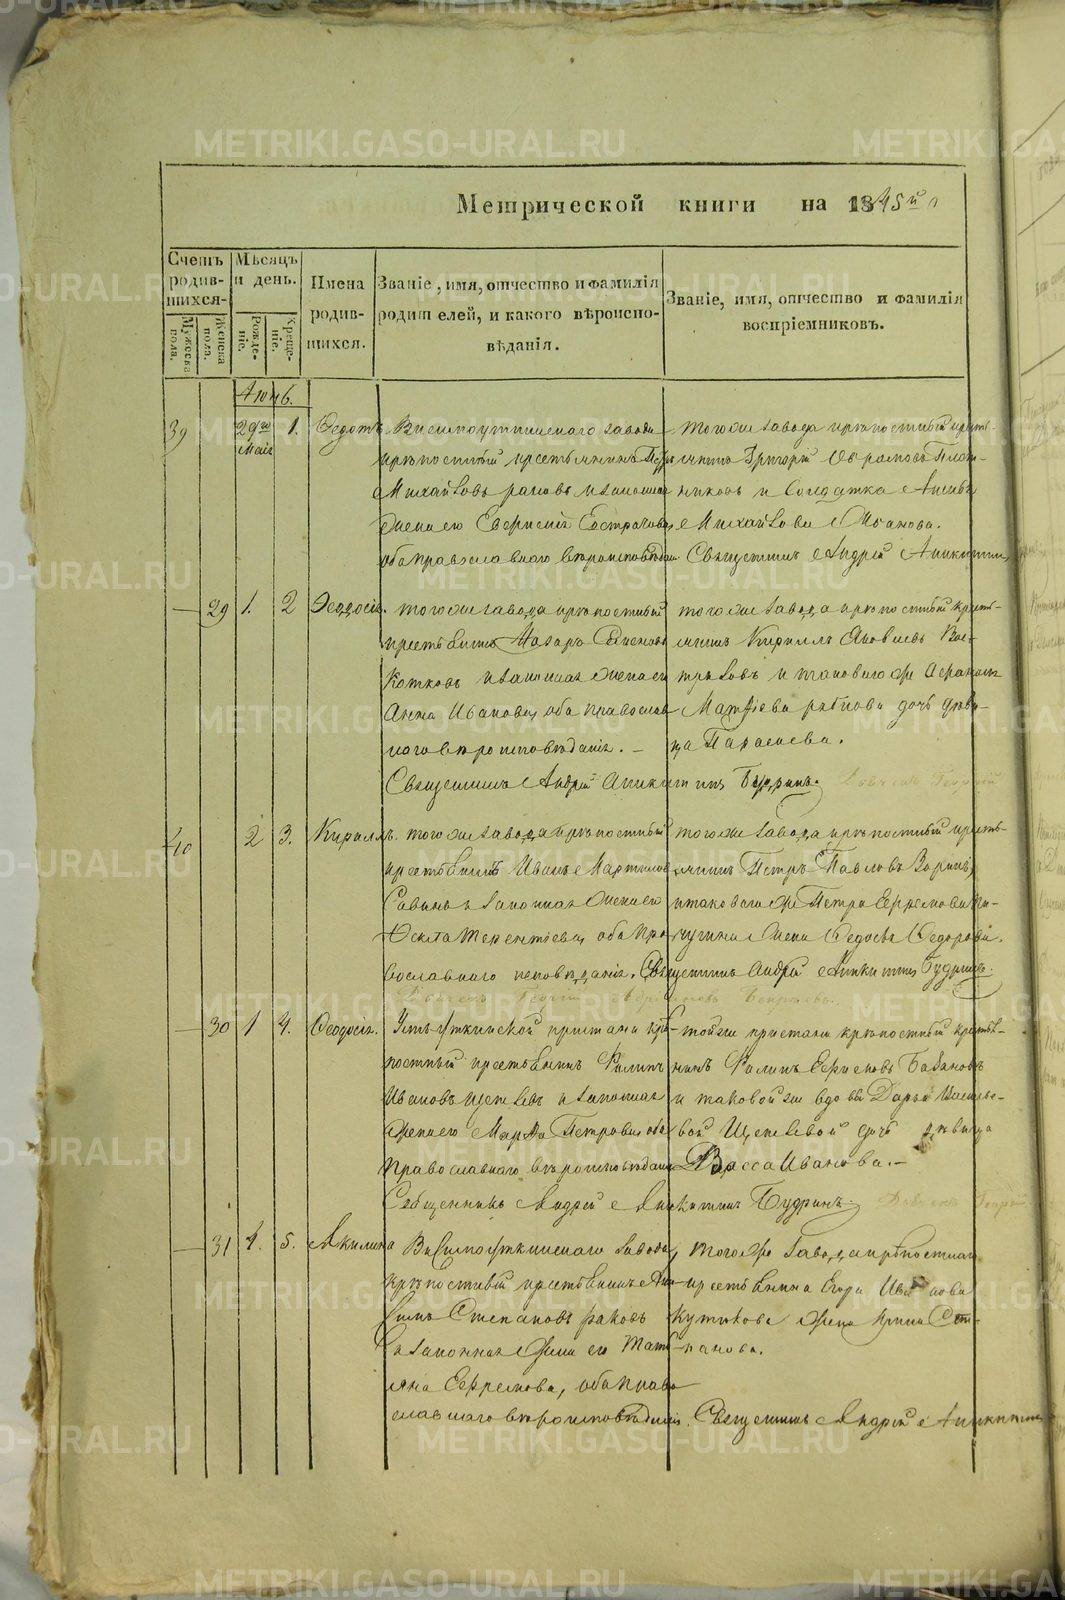 Метрической книги на 1845й
Счетъ родив-шихся.
Мужеска пола.
Женска пола.
Мѣсяцъ и день.
Рожде-ніе.
Креще-ніе.
Имена родив-шихся.
Званіе, имя, отчество и фамилія
родителей, и какого вѣроиспо-
вѣданія.
Званіе, имя, отчество и фамилія
воспріемниковъ.
Іюнь.
39
29го Маія
1.
Ѳедотъ.
Висимоуткинскаго завода
крѣпостный крестьянинъ Петръ
Михайловъ раковъ и законная
жена его Евгенія Евстратова,
оба православнаго вѣроисповѣданія
тогоже завода крѣпостный кресть-
янинъ Григорій Абрамовъ Плот-
никовъ и Солдатка
Михайлова Иванова.
Священникъ Андрей Аникитинъ
29
1.
2
Ѳеодосія.
тогоже завода крѣпостный
крестьянинъ Назаръ Семеновъ
Котковъ и законная жена его
Анна Иванова, оба православ-
наго вѣроисповѣданія. –
тогоже завода крѣпостный кресть-
янинъ Кириллъ Яковлевъ
и таковогоже
Матфіева дочь дѣви-
ца Параскева.
Священникъ Андрей Аникитинъ Будринъ.
40
2
3.
Кириллъ.
тогоже завода крѣпостный
крестьянинъ Иванъ Мартиновъ
Савинъ и законная жена его
Ѳекла Терентьева, оба пра-
вославнаго исповѣданія.
тогоже завода крѣпостный кресть-
янинъ Петръ Павловъ Зоринъ,
и таковогоже Петра Ефремова Пи-
чугина жена Ѳедосья Ѳедорова.
Священникъ Андрей Аникитинъ Будринъ.
30
1
4.
Ѳеодосія.
Усть-уткинской пристани крѣ-
постный крестьянинъ Филипъ
Ивановъ Щепелевъ и законная
жена его Марфа Петрова, оба
православнаго вѣроисповѣданія
тойже пристани крѣпостный кресть-
янинъ Филипъ Ефимовъ Бабиновъ
и таковойже вдовы Дарьи Василье-
вой Щепелевой дочь дѣвица
Васса Иванова. –
Священникъ Андрей Аникитинъ Будринъ.
31
4.
5.
Акилина
Висимоуткинскаго завода,
крѣпостный крестьянинъ
Степановъ раковъ
и законная жена его Тать-
яна Ефремова, оба право-
славнаго вѣроисповѣданія.
тогоже завода крѣпостнаго
крестьянина Егора Иванова
Кутюкова жена Ирина Сте-
панова.
Священникъ Андрей Аникитинъ
METRIKI.GASO-URAL.RU